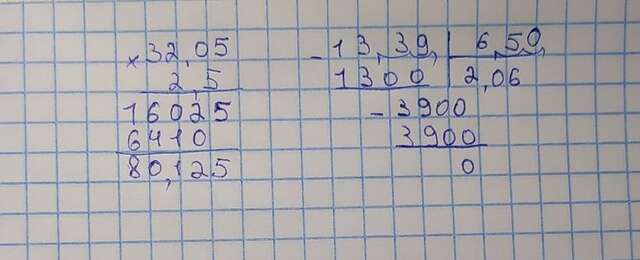 ×32,05
2,5
16025
6410
80,125
-13,39, | 6,50,
1300 | 2,06
-3900
3900
0